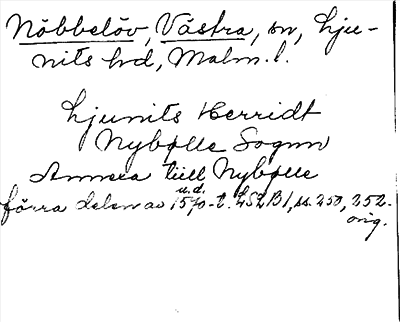 Nöbbelöv, Västra, sn, Lju-
nits hd, Malm. l.
Ljunits Herridt
Nybølle Sognn
Annexa till Nybølle
u.d.
förra delen av 1570-t. LS2B1, ss. 250, 252.
orig.